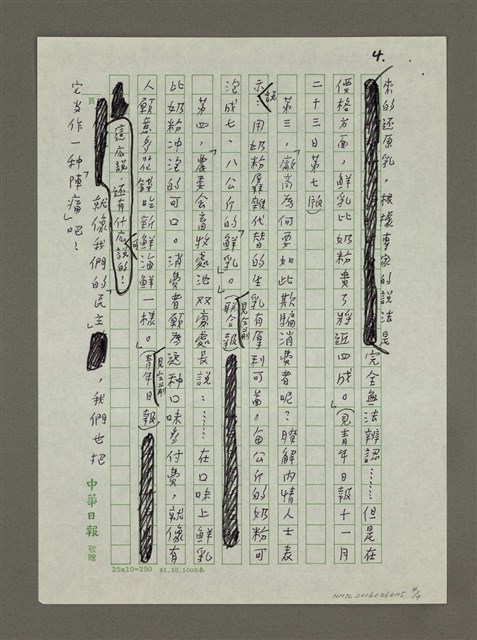 4.
來的还原乳，根據專家的說法是完全無法辨認……但是在
價格方面，鮮乳比奶粉貴了將近四成。」（見青年日報十一月
二十三日第七版）
第三，「廠商為何要如此欺騙消費者呢？瞭解內情人士表
示說：用奶粉摻雜代替的生乳有厚利可圖。每公斤的奶粉可
泡成七、八公斤的『鮮乳』。」（聯合報見全前）
第四，「農委会畜牧處池双慶處長說：……在口味上鮮乳
比奶粉冲泡的可口。消費者願為这种口味多付費，就像有
人願意多花錢吃新鮮海鮮一樣。」（青年日報見全前）
這麼說，还有什麼可說的！
就像我們的「民主」，我們也把
它当作一种「陣痛」吧！
頁
中華日報 敬贈
25x10=250 81.10.1000本